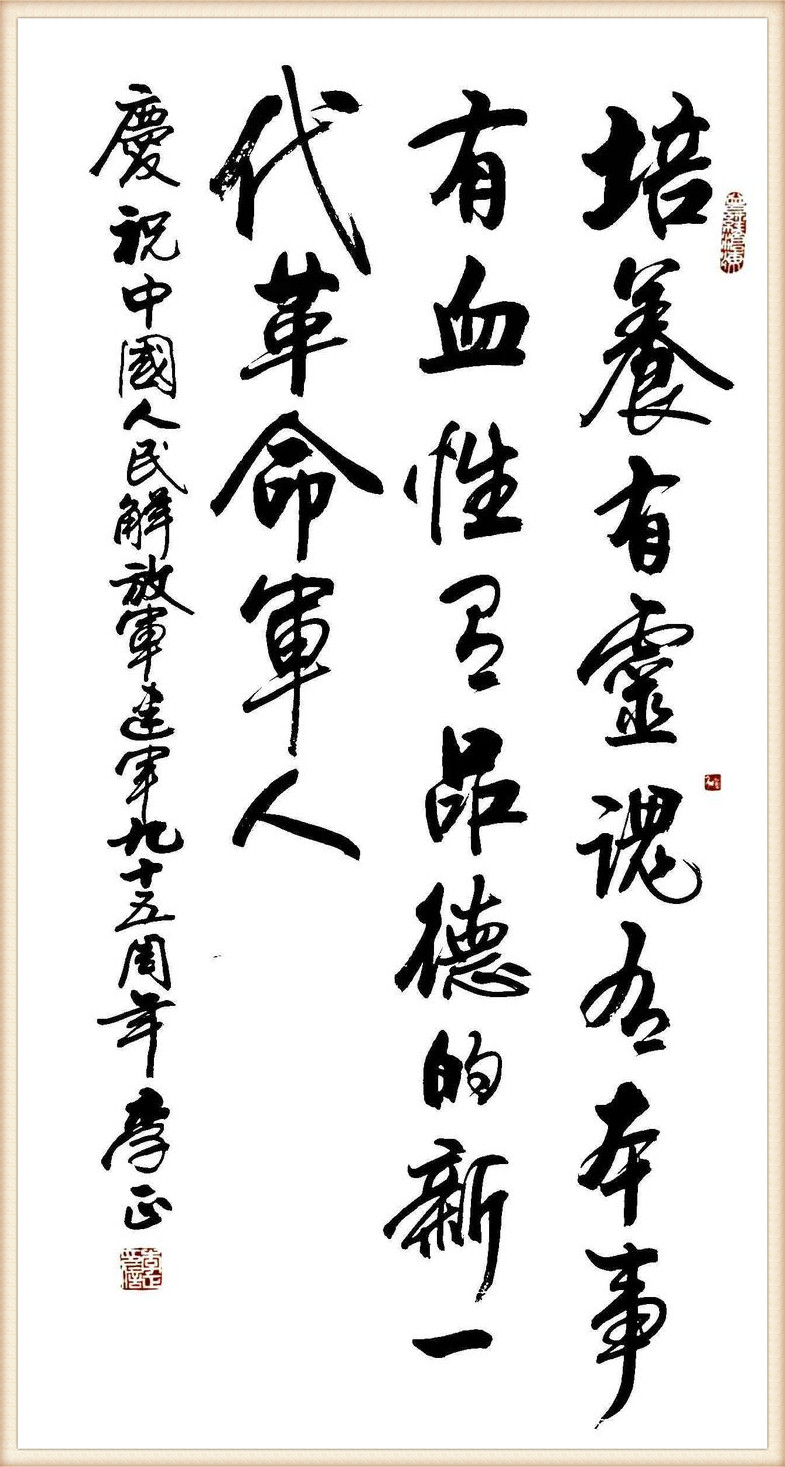 培養有靈魂有本事
有血性有品德的新一
代革命軍人
慶祝中國人民解放軍建軍九十五周年 李正